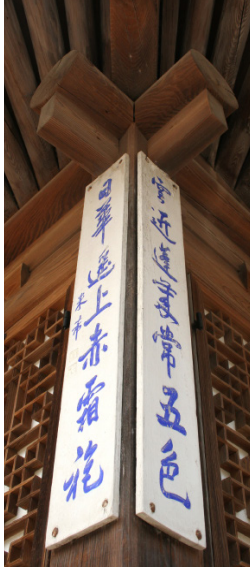 雲近蓬莱常五色
日華遥上赤霜袍